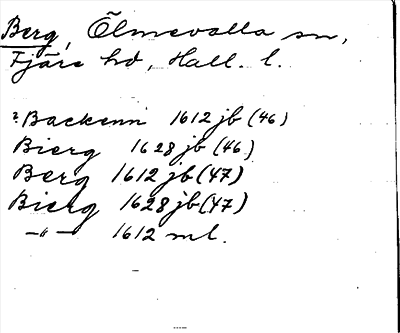 Berg, Ölmevalla sn,
Fjäre hd, Hall. l.
? Backenn 1612 jb (46)
Bierg 1628 jb (46)
Berg 1612 jb (47)
Bierg 1628 jb (47)
—"— 1612 ml.